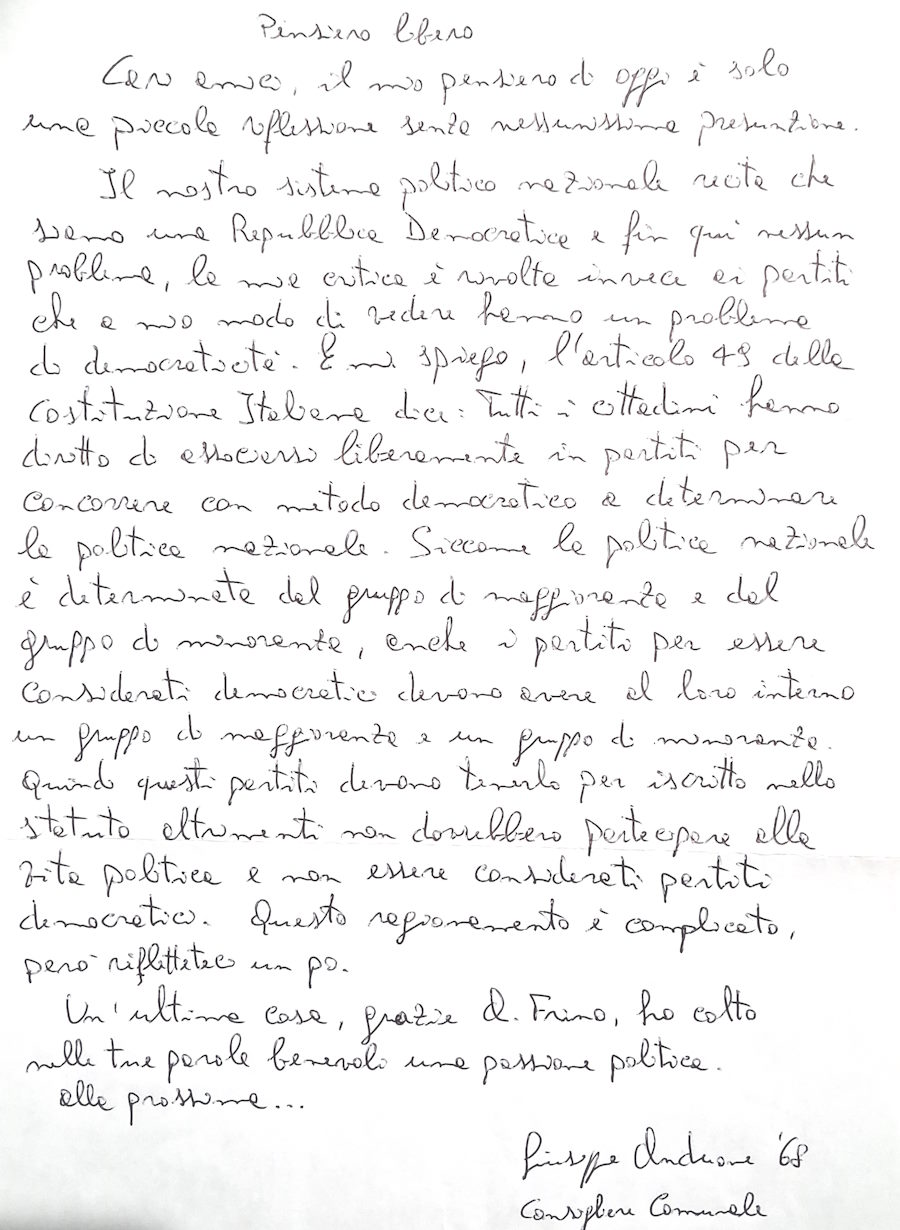 Pensiero libero
Caro amico, il mio pensiero di oggi è solo
una piccola riflessione senza nessunissima presunzione.
Il nostro sistema politico nazionale recita che
siamo una Repubblica Democratica e fin qui nessun
problema, la mia critica è rivolta invece ai partiti
che a mio modo di vedere hanno un problema
di democraticità. E mi spiego, l'articolo 49 della
Costituzione Italiana dice: Tutti i cittadini hanno
diritto di associarsi liberamente in partiti per
concorrere con metodo democratico a determinare
la politica nazionale. Siccome la politica nazionale
è determinata dal gruppo di maggioranza e dal
gruppo di minoranza, anche i partiti per essere
considerati democratici devono avere al loro interno
un gruppo di maggioranza e un gruppo di minoranza.
Quindi questi partiti devono tenerlo per iscritto nello
statuto altrimenti non dovrebbero partecipare alla
vita politica e non essere considerati partiti
democratici. Questo ragionamento è complicato,
però riflettateci un po.
Un'ultima cosa, grazie D. Frino, ho colto
nelle tue parole benevoli una passione politica.
alla prossima...
Giuseppe Andreone '68
Consigliere Comunale